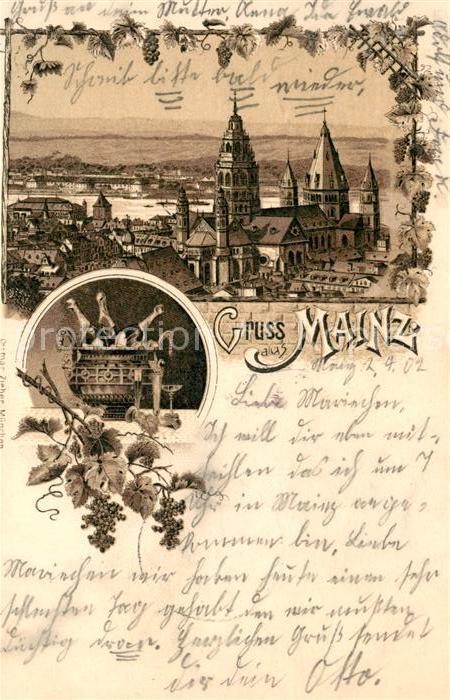 Gruß an dein Mutter, Anna, Ida Ewald
Schreib bitte bald wieder,
Gruss aus MAINZ
Mainz 2. 4. 02
Liebe Mariechen,
Ich will dir eben mit-
theihlen das ich um 7
Uhr in Mainz ange-
kommen bin, Liebe
Mariechen wir haben heute einen sehr
schlechten Tag gehabt den wir mußten
tüchtig dran. Herzlichen Gruß sendet
dir dein Otto.
Ottmar Zieher, München